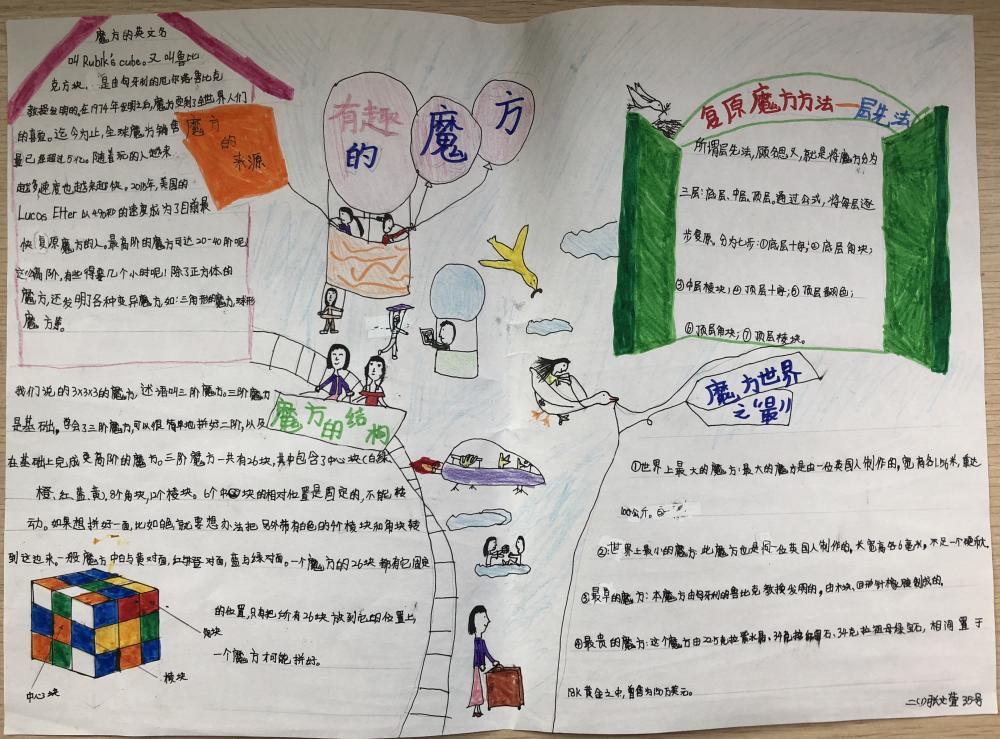 有趣
的
魔
方
魔方的英文名
叫Rubik's cube。又叫鲁比
克方块,是由匈牙利的厄尔诺·鲁比克
教授发明的。在1974年发明之后,魔方受到了全世界人们
的喜爱。迄今为止,全球魔方销售
量已经超过5亿。随着玩的人越来
越多,速度也越来越快。2015年,美国的
Lucas Etter以4.90秒的速度成为了目前最
快复原魔方的人。最高阶的魔方可达20-40阶呢!
这么高阶,有些得要几个小时呢!除了正方体的
魔方,还发明了各种变异魔方,如:三角形的魔方,球形
魔方等。
魔方
的
来源
我们说的3x3x3的魔方,述语叫三阶魔方。三阶魔方
是基础。学会了三阶魔方可以很简单地拼好二阶,以及
在基础上完成更高阶的魔方。三阶魔方一共有26块,其中包含了中心块(白绿
橙、红、蓝、黄),8个角块,12个棱块。6个中心块的相对位置是固定的,不能转
动。如果想拼好一面,比如白色,就要想办法把另外带有白色的4个棱块和角块转
到这边来,一般魔方中白与黄对面,红与橙对面,蓝与绿对面。一个魔方的26块都有它固定
的位置,只有把所有26块放到它的位置上,
一个魔方才能拼好。
魔方的结构
角块
棱块
中心块
复原魔方方法——层先法
所谓层先法,顾名思义,就是将魔方分为
三层:底层、中层、顶层,通过公式,将每层逐
步复原。分为七步:①底层十字;②底层角块;
③中层棱块;④顶层十字;⑤顶层翻色;
⑥顶层角块;⑦顶层棱块。
魔方世界
之“最”
①世界上最大的魔方:最大的魔方是由一位英国人制作的,宽有各1.56米,重达
100公斤。
②世界上最小的魔方:此魔方也是同一位英国人制作的,长宽高各6毫米,不足一个硬币大。
③最早的魔方:本魔方由匈牙利的鲁比克教授发明的,由木块、回形针和橡皮筋制成的。
④最贵的魔方:这个魔方由22.5克拉紫水晶、34克拉红宝石、34克拉祖母绿宝石,相间置于
18K黄金之中,售售为150万美元。
二(1)张文萱 35号